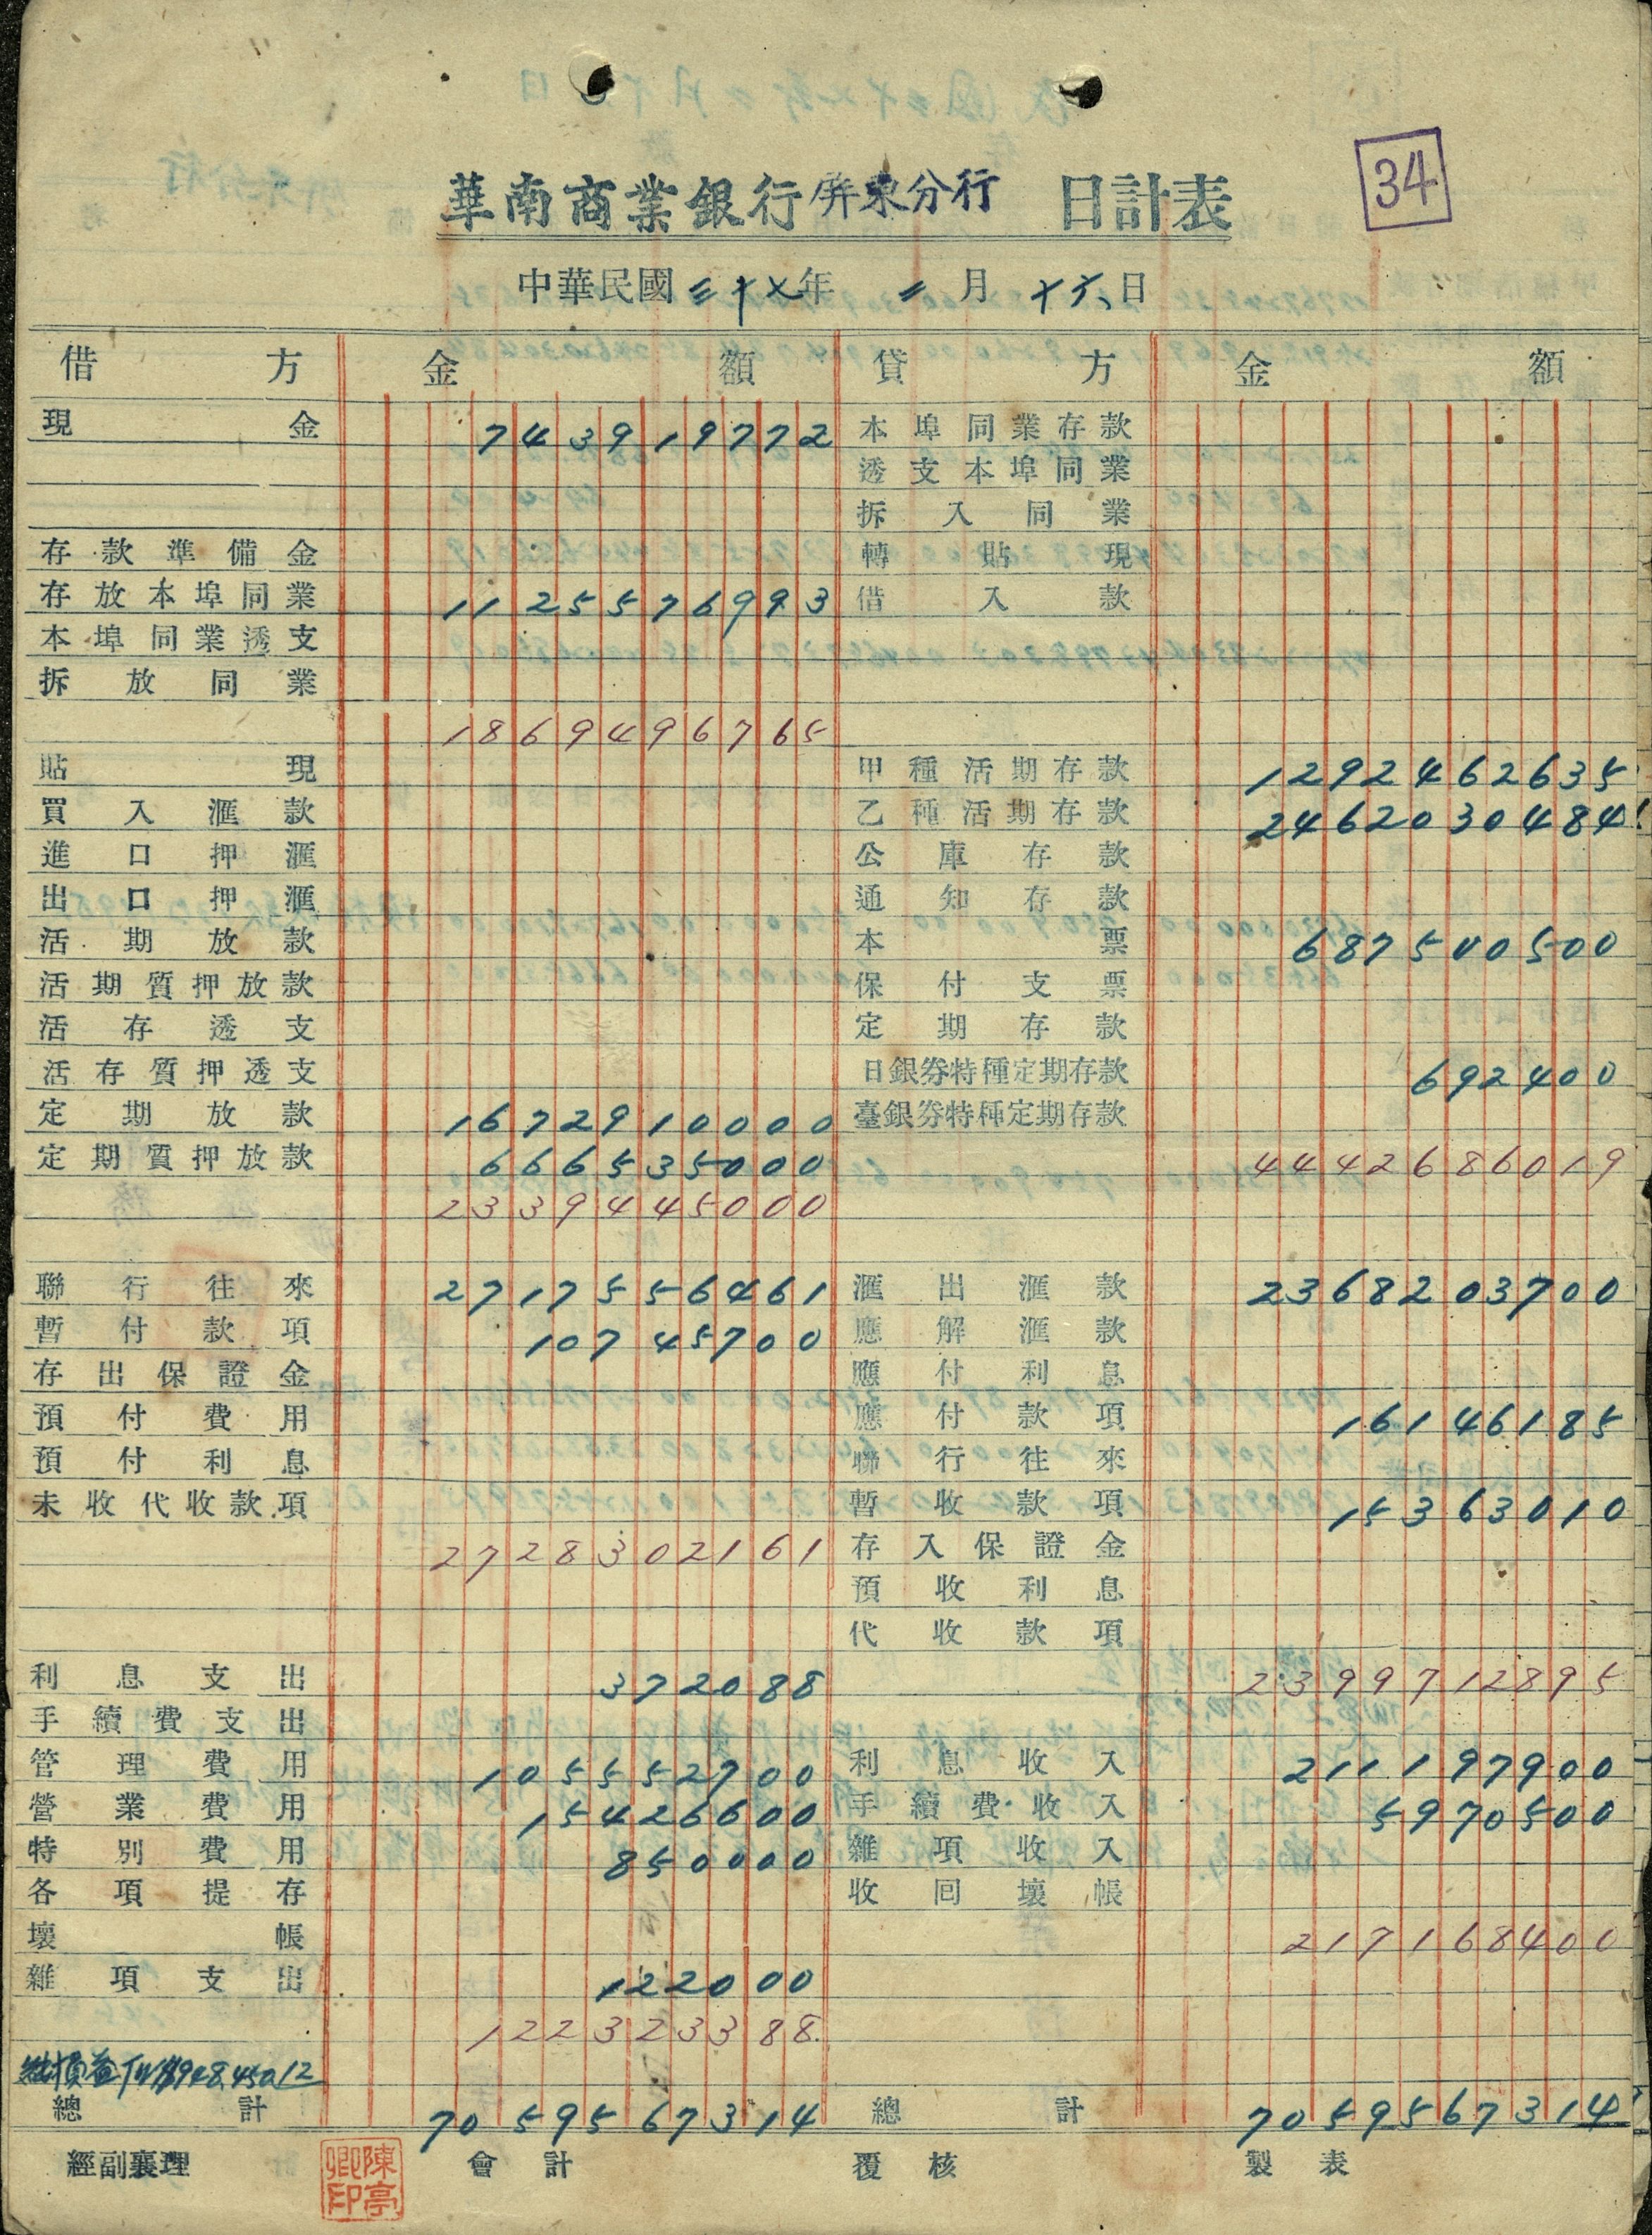 34
華南商業銀行屏東分行 日計表
中華民國三十七年二月十六日
借方 金額 貸方 金額
現金 743919772 本埠同業存款
透支本埠同業
拆入同業
存款準備金 轉貼現
存放本埠同業 11255576993 借入款
本埠同業透支
拆放同業
18694496765
貼現 甲種活期存款 1292462635
買入滙款 乙種活期存款 2462030484
進口押滙 公庫存款
出口押滙 通知存款
活期放款 本票 687500500
活期質押放款 保付支票
活存透支 定期存款
活存質押透支 日銀券特種定期存款 692400
定期放款 16729100000 臺銀券特種定期存款
定期質押放款 666535000 4442686019
23394445000
聯行往來 27175556461 滙出滙款 2368203700
暫付款項 10745700 應解滙款
存出保證金 應付利息
預付費用 應付款項 16146185
預付利息 聯行往來
未收代收款項 暫收款項 15363010
27283302161 存入保證金
預收利息
代收款項
利息支出 372088 2399712895
手續費支出
管理費用 105552700 利息收入 211197900
營業費用 15426600 手續費收入 5970500
特別費用 850000 雜項收入
各項提存 收回壞帳
壞帳 217168400
雜項支出 122000
122323388
純損益 948,450.12
總計 7059567314 總計 7059567314
經副襄理 會計 覆核 製表
陳亭卿印